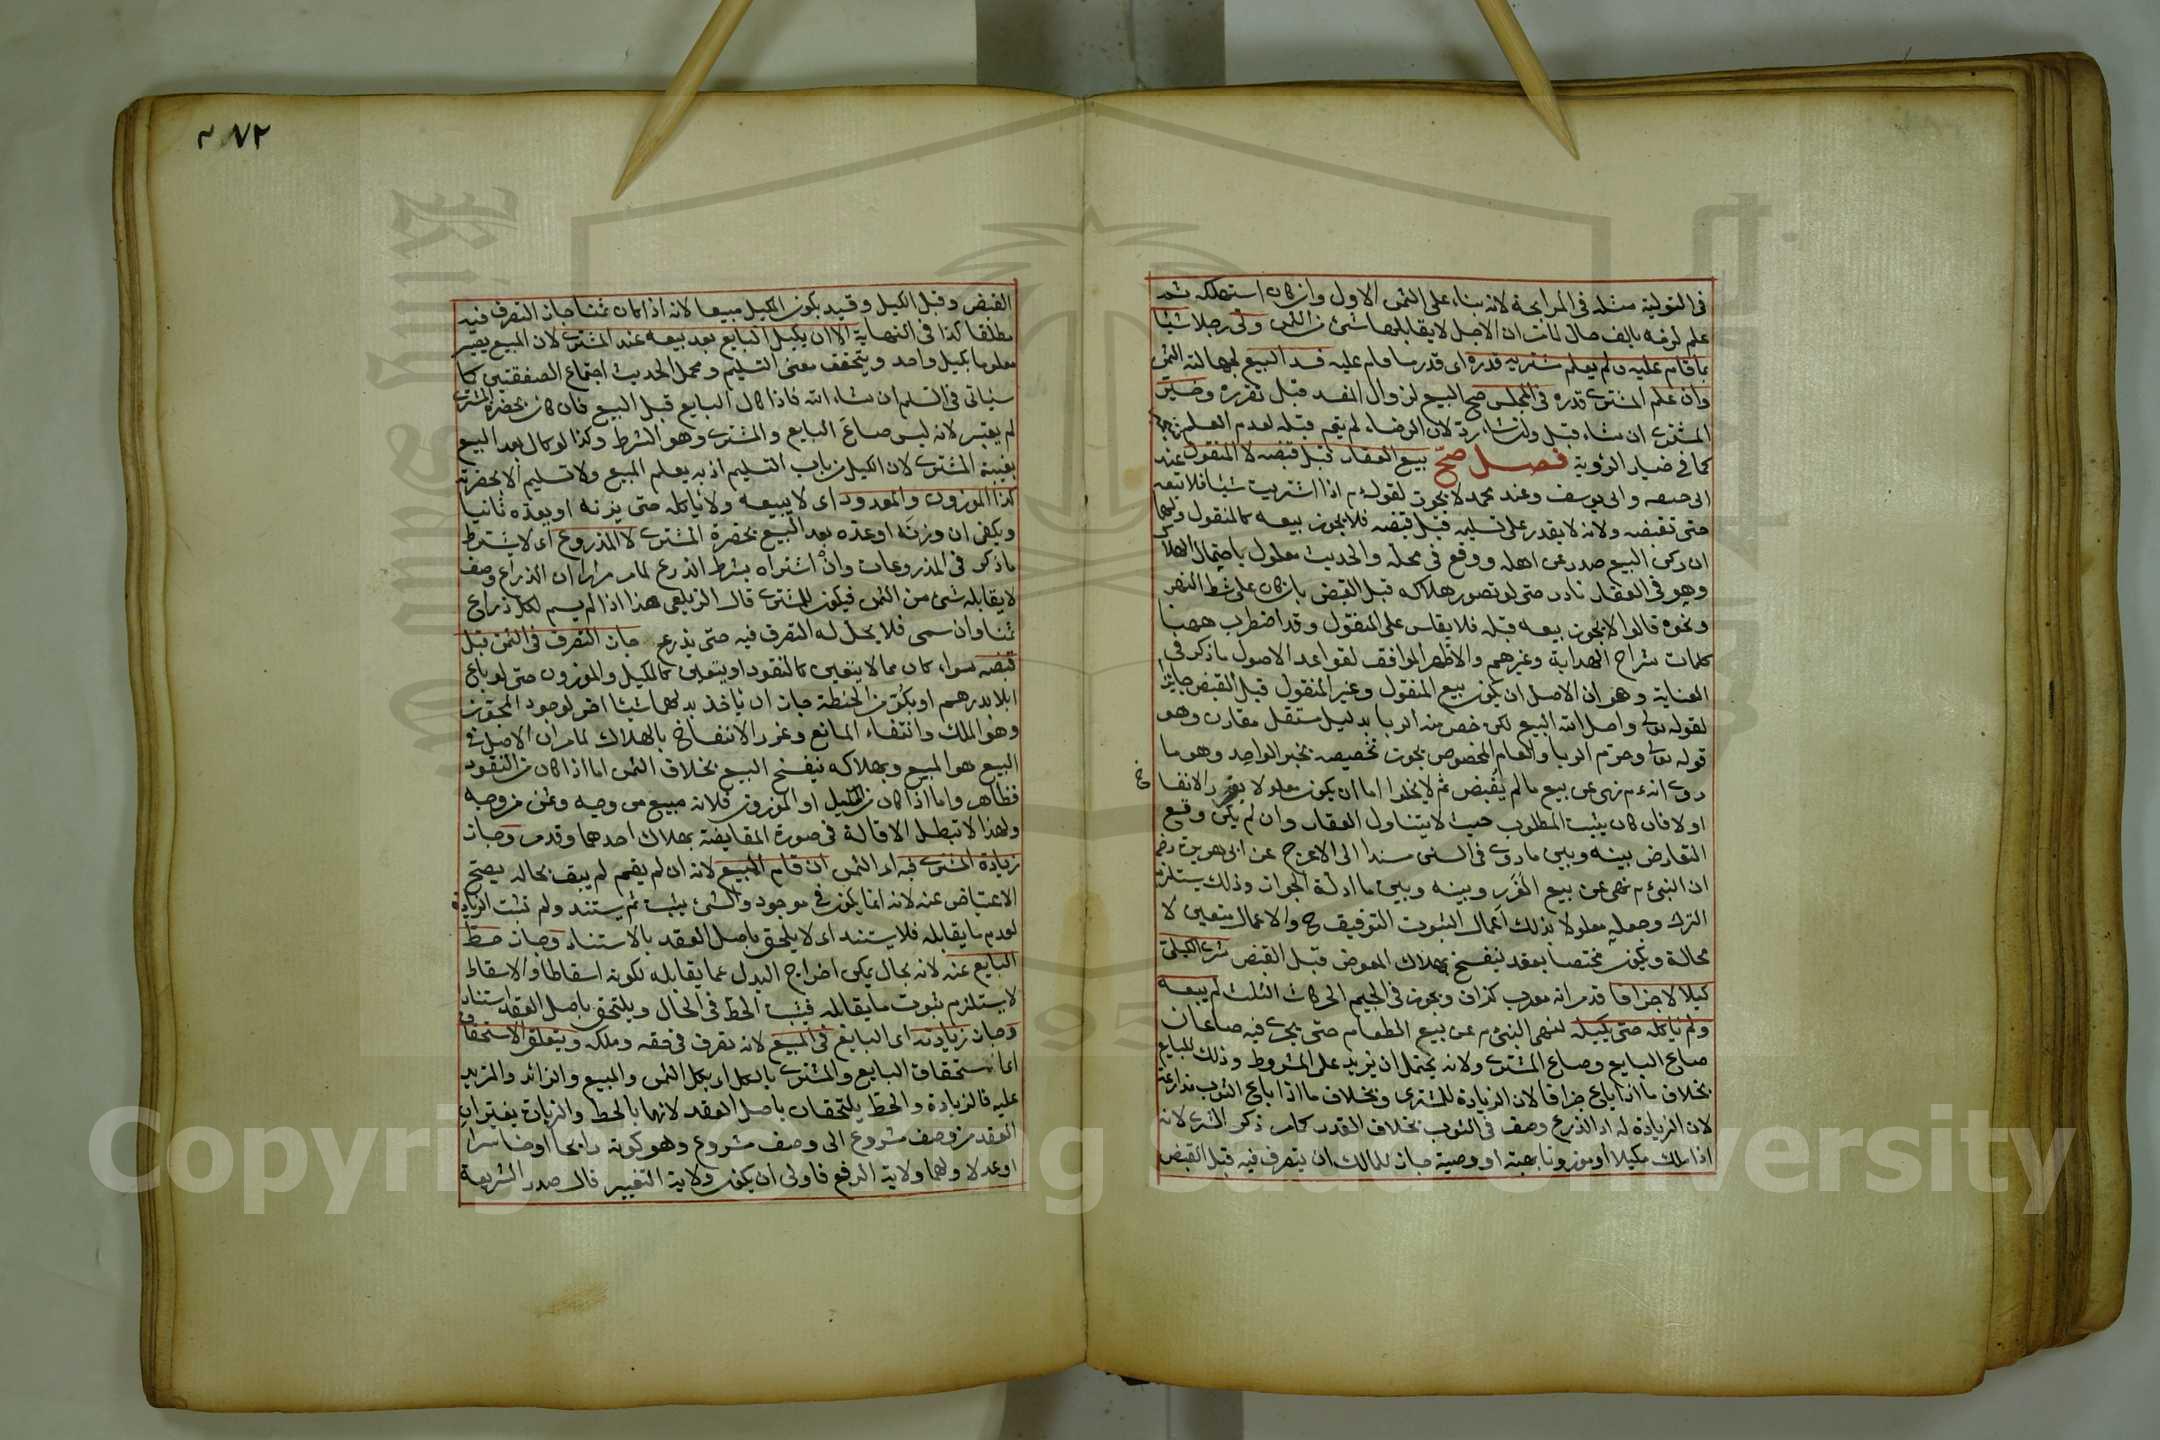 في التولية مثله في المرابحة لانه بناء على الثمن الاول وان كان استهلكه ثمه
علم لزمه بالف حال لمامر ان الاجل لا يقابلها شئ من الثمن ولى رجلا شيئا
بما قام عليه ولم يعلم مشتريه قدره اى قدر ما قام عليه فسد البيع لجهالته الثمن
وان علم المشترى قدره في المجلس صح البيع لزوال المفسد قبل تقرره وخير
المشترى ان شاء قبل وان شاء رد لان الرضاء لم يتم قبله لعدم العلم
كما في خيار الرؤية فصل صح بيع العقار قبل قبضه لا المنقول عند
ابى حنيفه وابى يوسف وعند محمد لا يجوز لقوله م اذا اشتريت شيئا فلا تبعه
حتى تقبضه ولانه لا يقدر على تسليمه قبل قبضه فلا يجوز بيعه كالمنقول ولهما
ان ركن البيع صدر عن اهله ووقع في محله والحديث معلول باحتمال الهلاك
وهو في العقار نادر حتى لو تصور هلاكه قبل القبض بان كان على شط النهر
ونحوه قالوا لا يجوز بيعه قبله فلا يقاس على المنقول وقد اضطرب ههنا
كلمات شراح الهداية وغيرهم والاظهر الموافق لقواعد الاصول ما ذكر في
العناية وهو ان الاصل ان يكون بيع المنقول وغير المنقول قبل القبض جايزا
لقوله تعالى واحل الله البيع لكن خص منه الربا بدليل مستقل مقارن وهو
قوله تعالى وحرم الربا والعام المخصوص يجوز تخصيصه بخبر الواحد وهو ما
روى انه م نهى عن بيع ما لم يقبض ثم لا يخلو اما ان يكون معلولا بغرر الانفسا
خ
او لا فان كان يثبت المطلوب حيث لا يتناول العقار وان لم يكن وقع
التعارض بينه وبين ما روى في السنن مسندا الى الاعرج عن ابى هريرة رضه
ان النبي م نهى عن بيع الغرر وبينه وبين ما ادلة الجواز وذلك يستلزم
الترك وجعله معلولا بذلك اعمال لثبوت التوفيق ح والاعمال متعين لا
محالة ويكون مختصا بعقد ينفسخ بهلاك العوض قبل القبض شرى الكيلى
كيلا لا جزافا قد مر انه معرب كذاف ويجوز في الجيم الحركات الثلث لم يبعه
ولم ياكله حتى يكيله لنهى النبي م عن بيع الطعام حتى يجرى فيه صاعان
صاع البايع وصاع المشترى ولانه يحتمل ان يزيد على المشروط وذلك للبايع
بخلاف ما اذا باع جزافا لان الزيادة للمشترى وبخلاف ما اذا باع الثوب مذارعة
لان الزيادة له اذ الذرع وصف في الثوب بخلاف القدر كما مر ذكر الشرى لانه
اذا ملك مكيلا او موزونا بهبة او وصية جاز للمالك ان يتصرف فيه قبل القبض
٢٧٢
القبض وقبل الكيل وقيد بكون المكيل مبيعا لانه اذا كان ثمنا جاز التصرف فيه
مطلقا كذا في النهاية الا ان يكيل البايع بعد بيعه عند المشترى لان المبيع يصير
معلوما بكيل واحد ويتحقق معنى التسليم ومحمل الحديث اجتماع الصفقتين كما
سياتى في السلم ان شاء الله فاذا كال البايع قبل البيع فان كان بحضرة المشترى
لم يعتبر لانه ليس صاع البايع والمشترى وهو الشرط وكذا لو كال بعد البيع
بغيبة المشترى لان الكيل من باب التسليم اذ به يعلم المبيع ولا تسليم الا بحضرته
كذا الموزون والمعدود اى لا يبيعه ولا ياكله حتى يزنه او يعده ثانيا
ويكفى ان وزنه او عده بعد البيع بحضرة المشترى لا المذروع اى لا يشترط
ما ذكر في المذروعات وان اشتراه بشرط الذرع لما مر مرارا ان الذراع وصف
لا يقابله شئ من الثمن فيكون للمشترى قال الزيلعى هذا اذا لم يسم لكل ذراع
ثمنا وان سمى فلا يحل له التصرف فيه حتى يذرع جاز التصرف في الثمن قبل
قبضه سواء كان مما لا يتعين كالنقود او يتعين كالمكيل والموزون حتى لو باع
ابلا بدرهم او بكر من الحنطة جاز ان ياخذ بدلهما شيئا اخر لوجود المجوز
وهو الملك وانتفاء المانع وغرر الانفساخ بالهلاك لما مر ان الاصل في
البيع هو المبيع وبهلاكه ينفسخ البيع بخلاف الثمن اما اذا كان من النقود
فظاهر واما اذا كان من المكيل او الموزون فلانه مبيع من وجه وثمن من وجه
ولهذا لا تبطل الاقالة في صورة المقايضة بهلاك احدهما وقد مر وجاز
زيادة المشترى فيه اى الثمن ان قام المبيع لانه ان لم يقم لم يبق بحاله يصح
الاعتياض عنه لانه انما يكون في موجود والشئ يثبت ثم يستند ولم تثبت الزيادة
لعدم ما يقابله فلا يستند اى لا يلحق باصل العقد بالاستناد وجاز حط
البايع عنه لانه بحال يمكن اخراج البدل عما يقابله لكونه اسقاطا والاسقاط
لا يستلزم ثبوت ما يقابله فيثبت الحط في الحال ويلتحق باصل العقد استنادا
وجاز زيادته اى البايع في المبيع لانه تصرف في حقه وملكه ويتعلق الاستحقاق
اى استحقاق البايع والمشترى بالكل اى بكل الثمن والمبيع والزائد والمزيد
عليه فالزيادة والحط يلتحقان باصل العقد لانهما بالحط والزيادة يغيران
العقد من وصف مشروع الى وصف مشروع وهو كونه رابحا او خاسرا
او عدلا ولهما ولاية الرفع فاولى ان يكون ولاية التغيير قال صدر الشريعة
Copyright © King Saud University